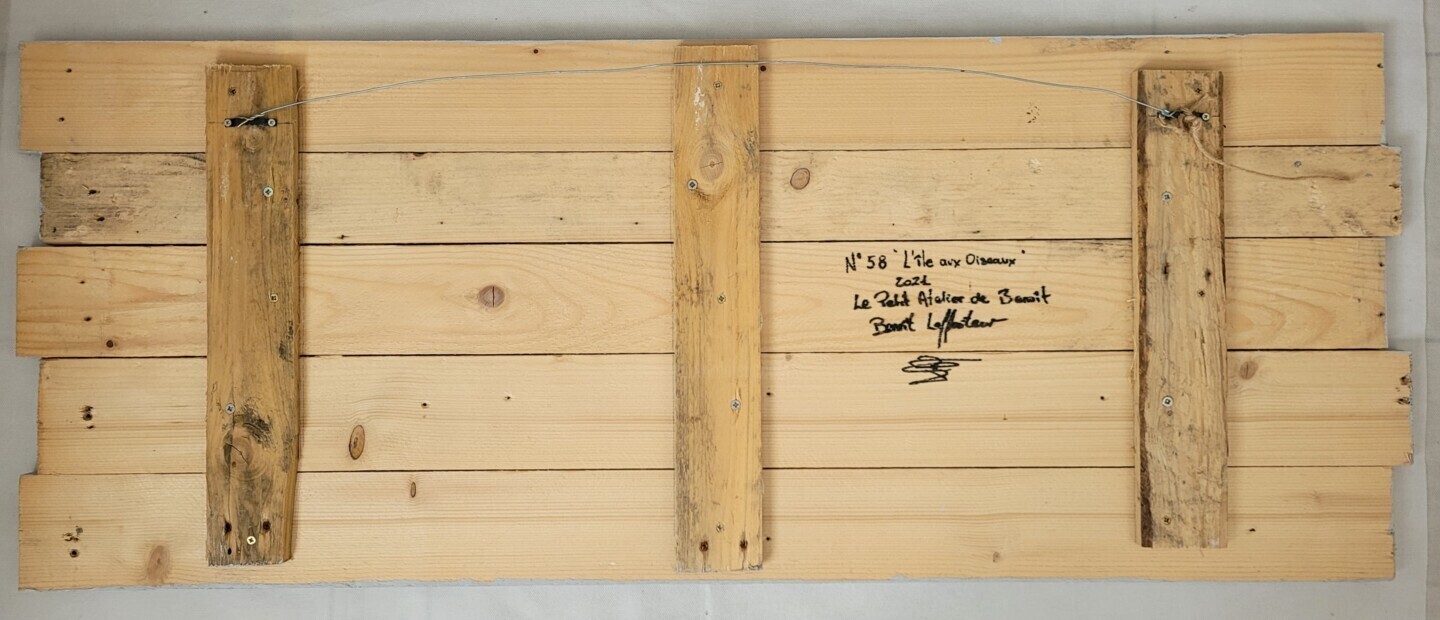 N° 58 "L'île aux Oiseaux"
2021
Le Petit Atelier de Benoît
Benoît